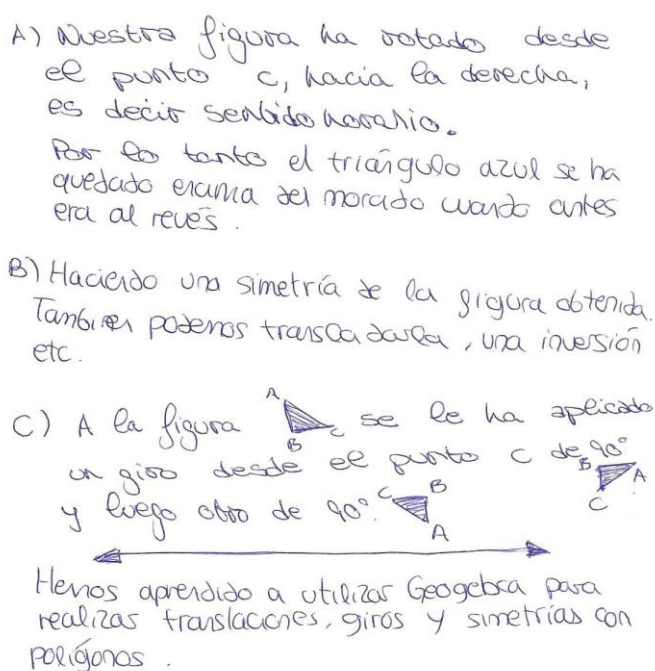 A) Nuestra figura ha rotado desde
el punto C, hacia la derecha,
es decir sentido horario.
Por lo tanto el triángulo azul se ha
quedado encima del morado cuando antes
era al revés.
B) Haciendo una simetría de la figura obtenida.
Tambien podemos transladarla, una inversión
etc.
C) A la figura A B C se le ha aplicado
un giro desde el punto C de 90° B A C
y luego otro de 90°. C B A
Hemos aprendido a utilizar Geogebra para
realizar translaciones, giros y simetrías con
polígonos.